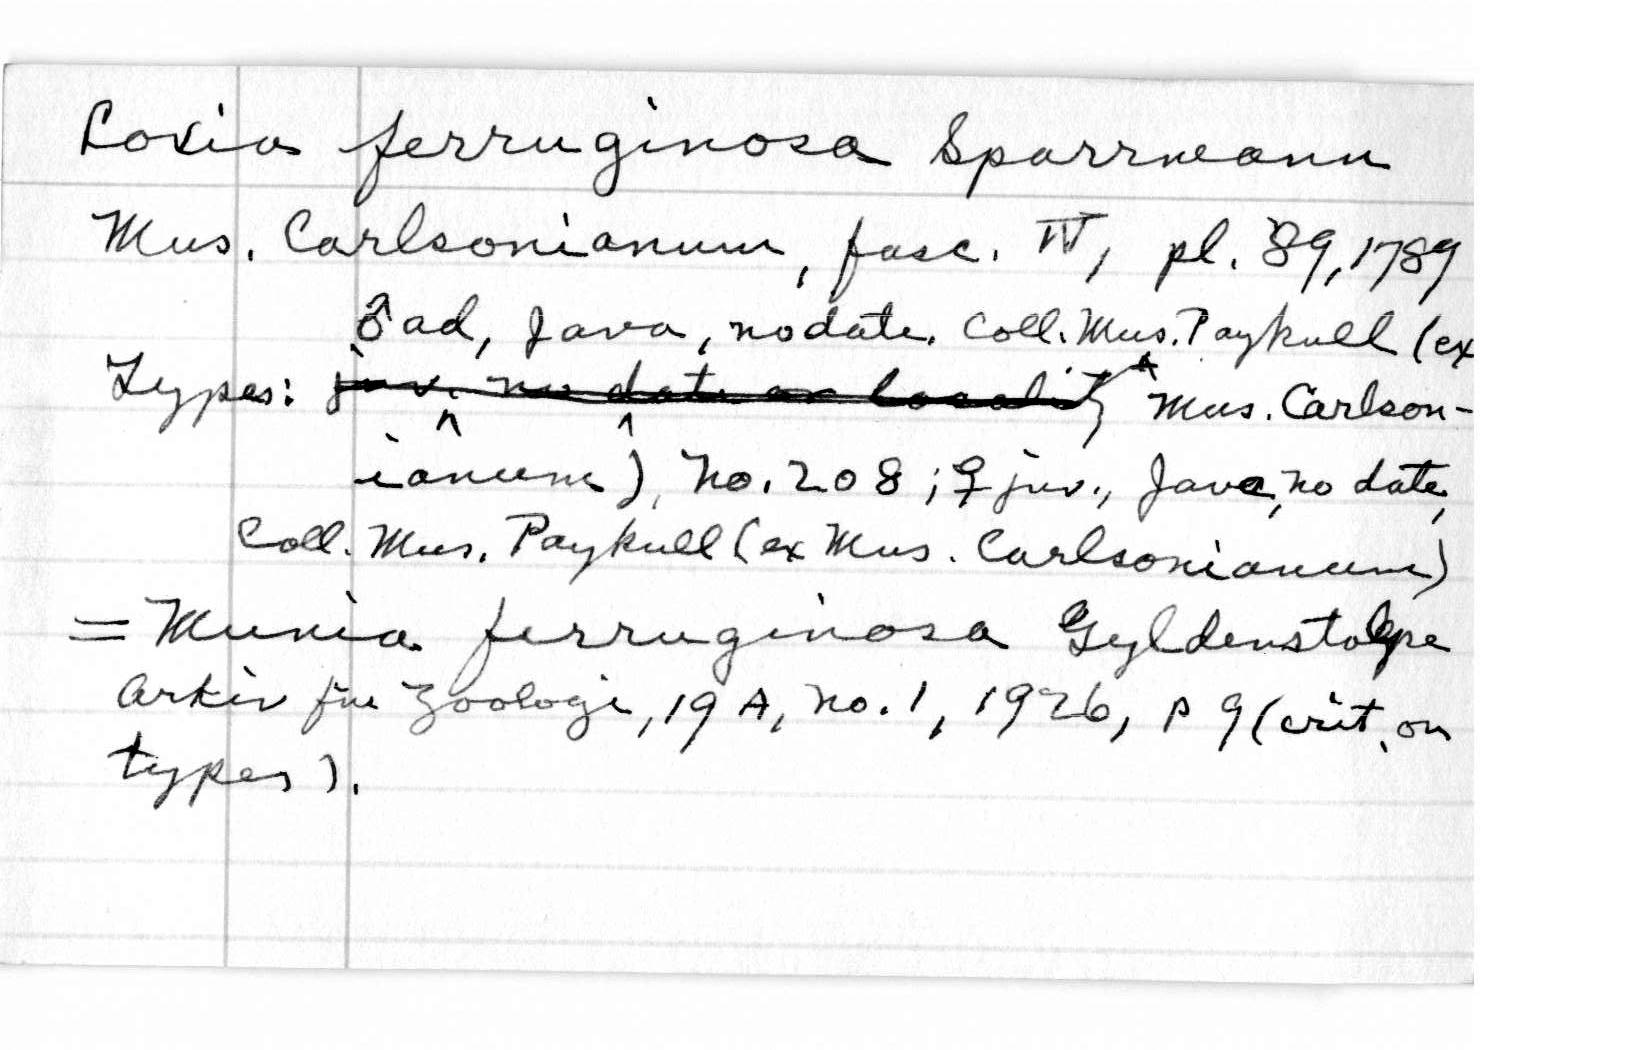 Loxia ferruginosa Sparrmann
Mus. Carlsonianum, fasc. IV, pl. 89, 1789
♂ ad, Java, no date. Coll. Mus. Paykull (ex
Types: juv. no date or locality Mus. Carlson-
ianum), No. 208; ♀ juv., Java, no date,
Coll. Mus. Paykull (ex Mus. Carlsonianum)
= Munia ferruginosa Gyldenstolpe
Arkiv für Zoologi, 19 A, No. 1, 1926, p 9 (crit. on
types).